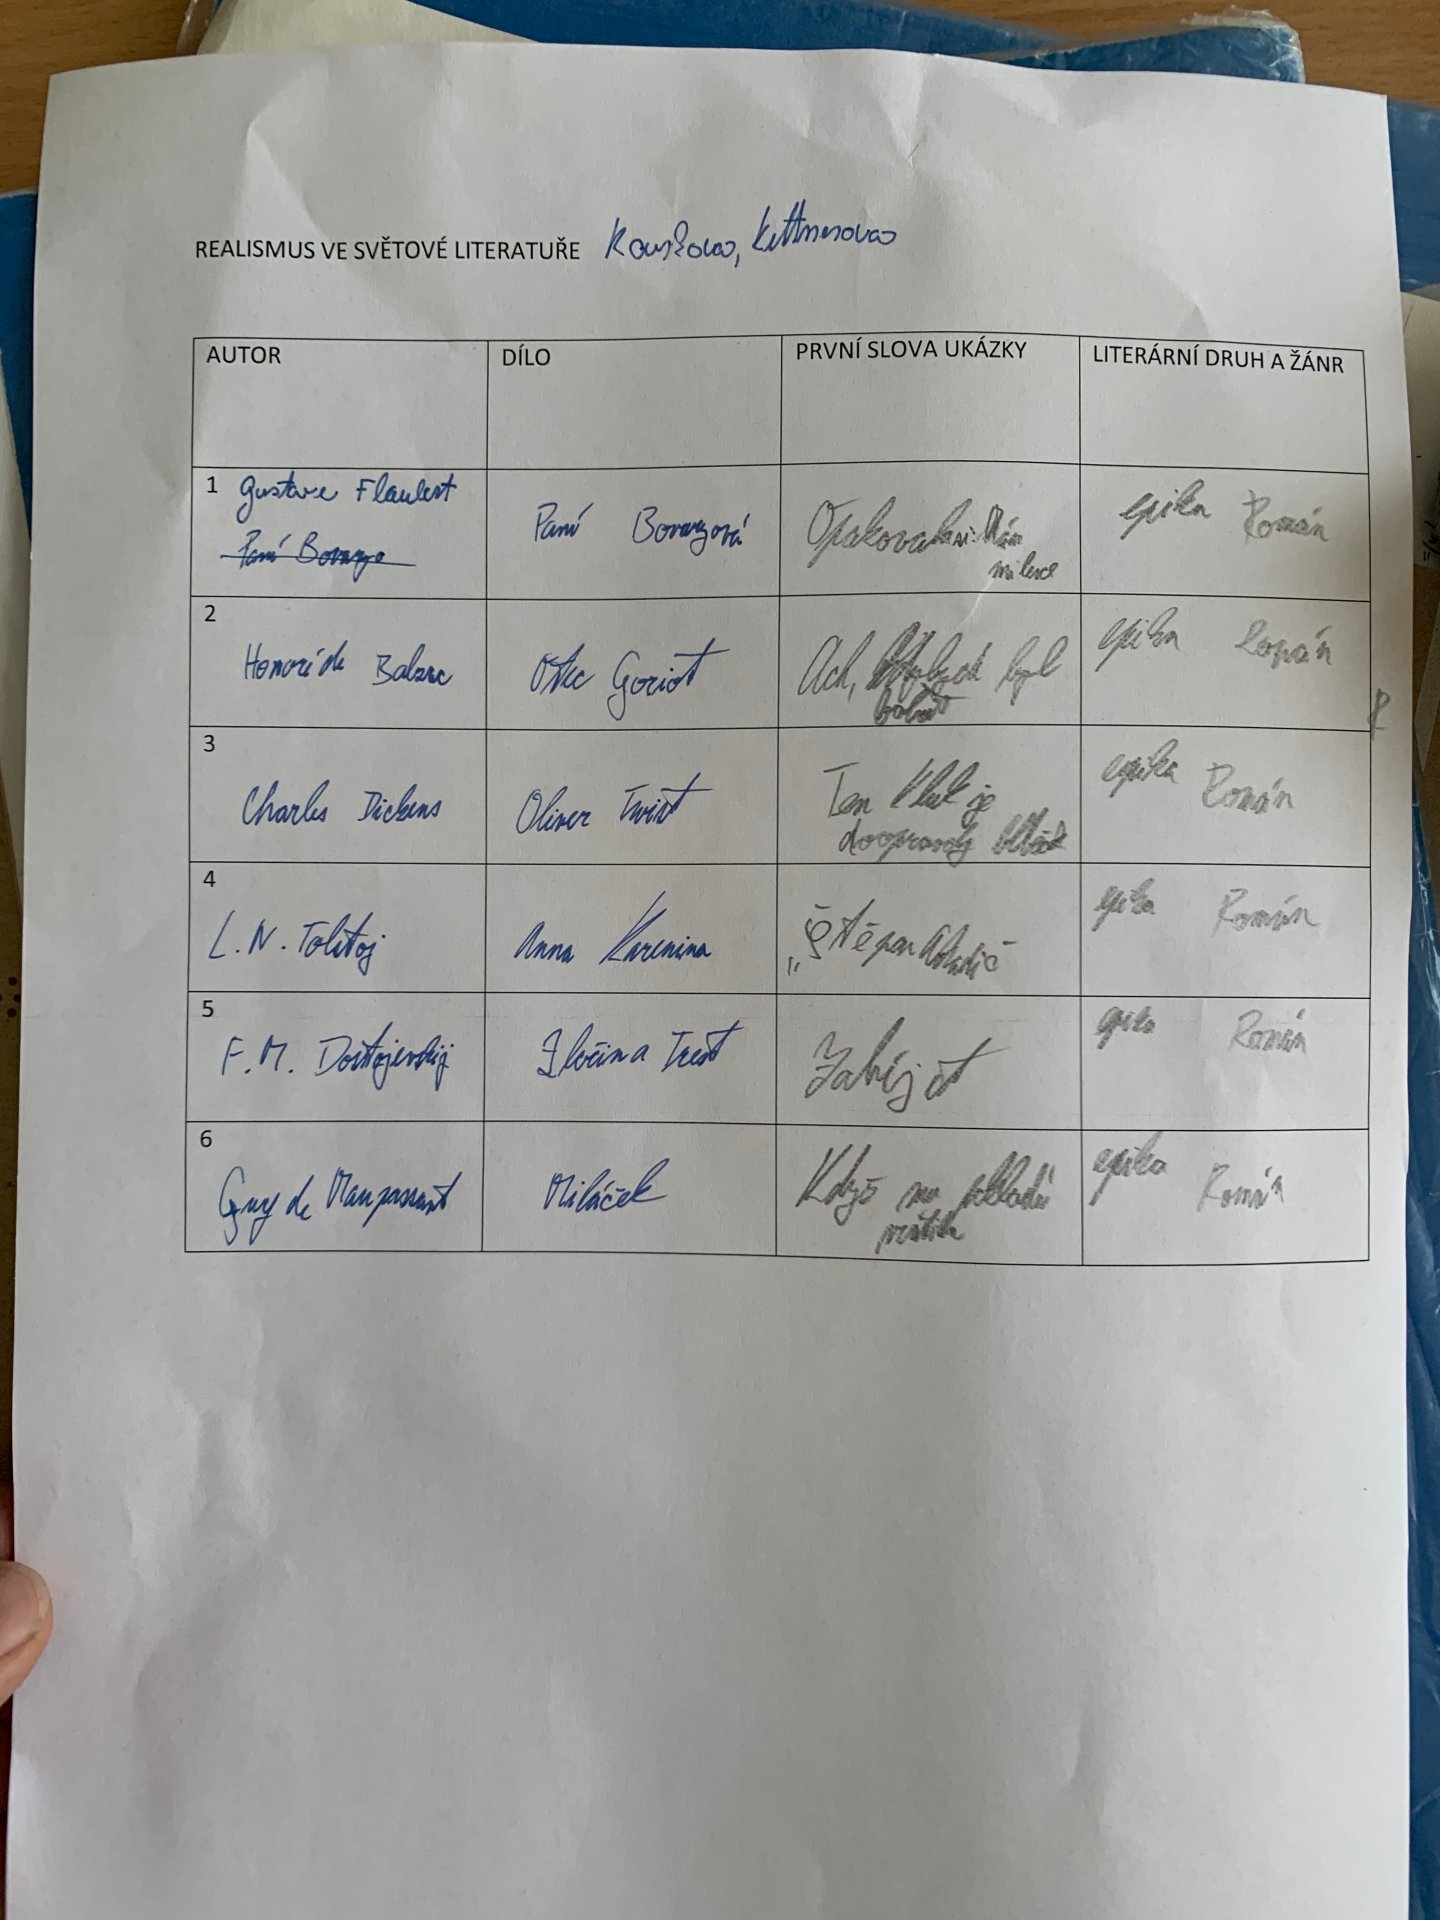 REALISMUS VE SVĚTOVÉ LITERATUŘE
AUTOR DÍLO PRVNÍ SLOVA UKÁZKY LITERÁRNÍ DRUH A ŽÁNR
1 Gustave Flaubert
Paní Bovaryová Opakovala si: Mám epika Román
milence
2
Honoré de Balzac Otec Goriot Ach, byl epika Román
3
Charles Dickens Oliver Twist Ten kluk je epika Román
doopravdy
4
L. N. Tolstoj Anna Karenina epika Román
„Štěpan
5
F. M. Dostojevskij Zločin a Trest Zabíjet epika Román
6
Guy de Maupassant Miláček Když mu epika Román